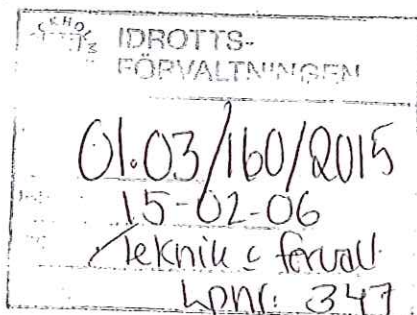 IDROTTS-
FÖRVALTNINGEN
01.03/160/2015
15-02-06
Teknik & förvalt
Lpnr: 347